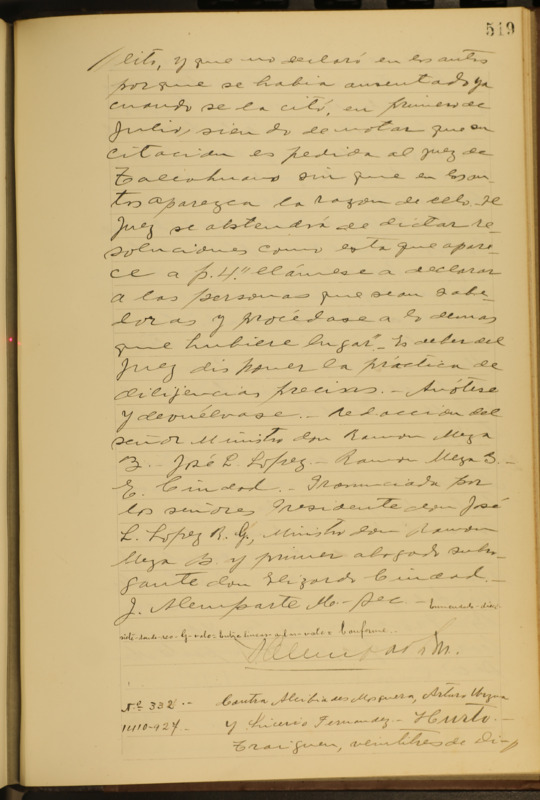 519
lito, y que no declaró en los autos
porque se habia ausentado ya
cuando se la citó, en primero de
Julio, siendo de notar que su
citacion es pedida al juez de
Talcahuano sin que en los au-
tos aparezca la razon de ello. El
Juez se abstendrá de dictar re-
soluciones como esta que apare-
ce a p. 4." "llámese a declarar
a las personas que sean sabe-
doras y procédase a lo demas
que hubiere lugar". Es deber del
Juez disponer la práctica de
dilijencias precisas. - Anótese
y devuélvase. - Redaccion del
señor Ministro don Ramon Meza
B. - José L. Lopez. - Ramon Meza B. -
E. Ciudad. - Pronunciada por
los señores Presidente don José
L. Lopez R. Ministro don Ramon
Meza B. y primer abogado subro-
gante don Elizardo Ciudad. -
J. Alemparte Mo- Sec -
Conforme. -
Nº 332. - Contra Alcibiades Mosquera, Arturo
1110-927. - y Fernandez. - Hurto. -
Traiguen, veintitres de Di-